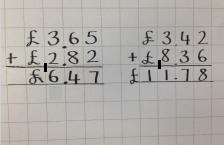 £3.65
+ £2.82
£6.47
£3.42
+ £8.36
£11.78